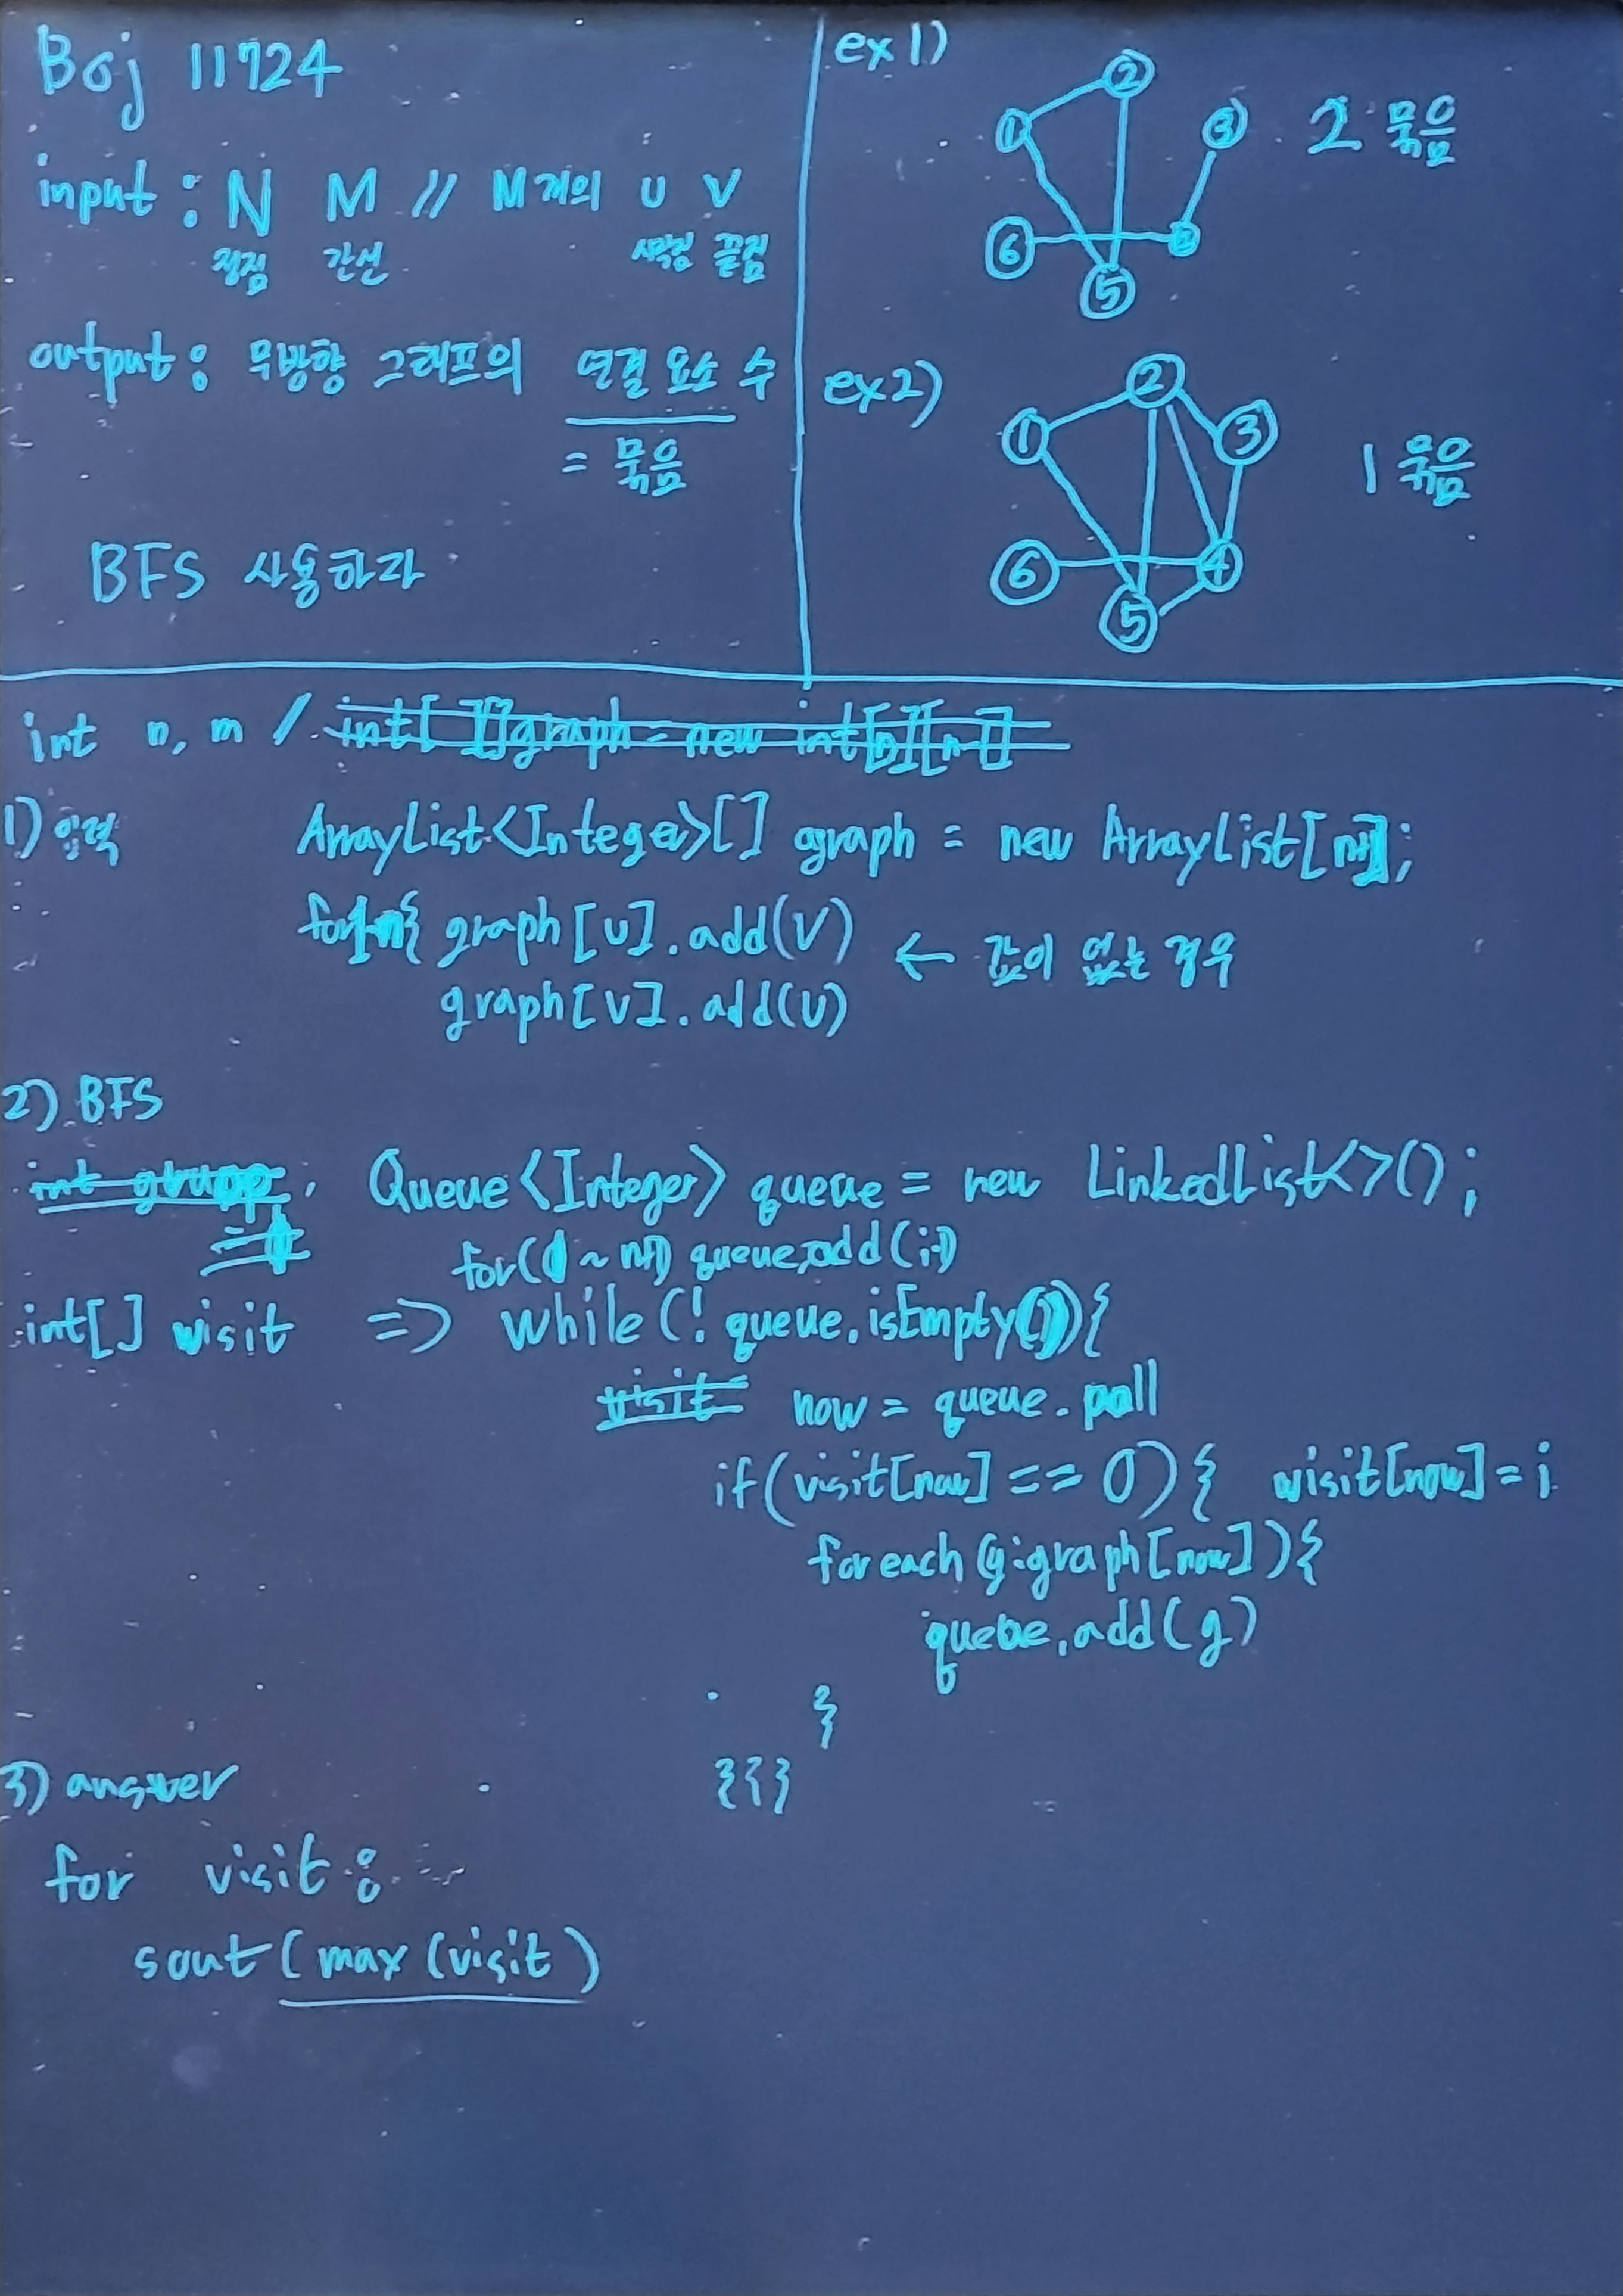 Boj 11724
input : N M // M개의 u v
정점 간선 시작점 끝점
output : 무방향 그래프의 연결 요소 수
= 묶음
BFS 사용하라
ex 1)
2
1
3
2 묶음
6
5
ex 2)
2
1
3
1 묶음
6
4
5
int n, m / int[][]graph = new int[n][n-1]
1) 입력 ArrayList<Integer>[] graph = new ArrayList[n+1];
for1~n{ graph[u].add(v) ← 값이 없는 경우
graph[v].add(u)
2) BFS
int group, Queue<Integer> queue = new LinkedList<>();
=1 for(1 ~ n+1) queue.add(i)
int[] visit => while(! queue.isEmpty()){
visit now = queue.poll
if(visit[now] == 0){ visit[now] = i
foreach(g:graph[now]){
queue.add(g)
}
}}}
3) answer
for visit :
sout( max(visit)